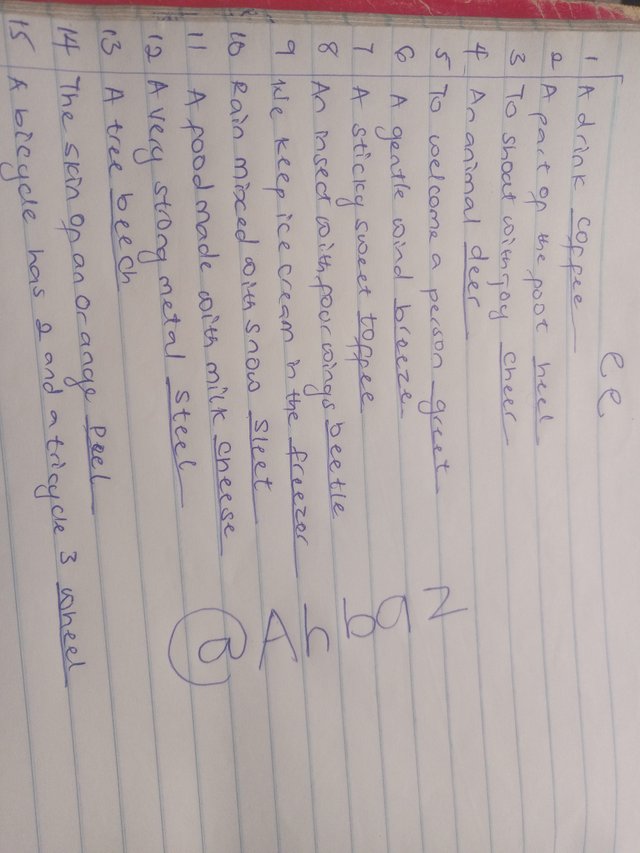 ee
1 A drink coffee
2 A part of the foot heel
3 To shout with joy cheer
4 An animal deer
5 To welcome a person greet
6 A gentle wind breeze
7 A sticky sweet toffee
8 An insect with four wings beetle
9 We keep ice cream in the freezer
10 Rain mixed with snow sleet
11 A food made with milk cheese
12 A very strong metal steel
13 A tree beech
14 The skin of an orange Peel
15 A bicycle has 2 and a tricycle 3 wheel